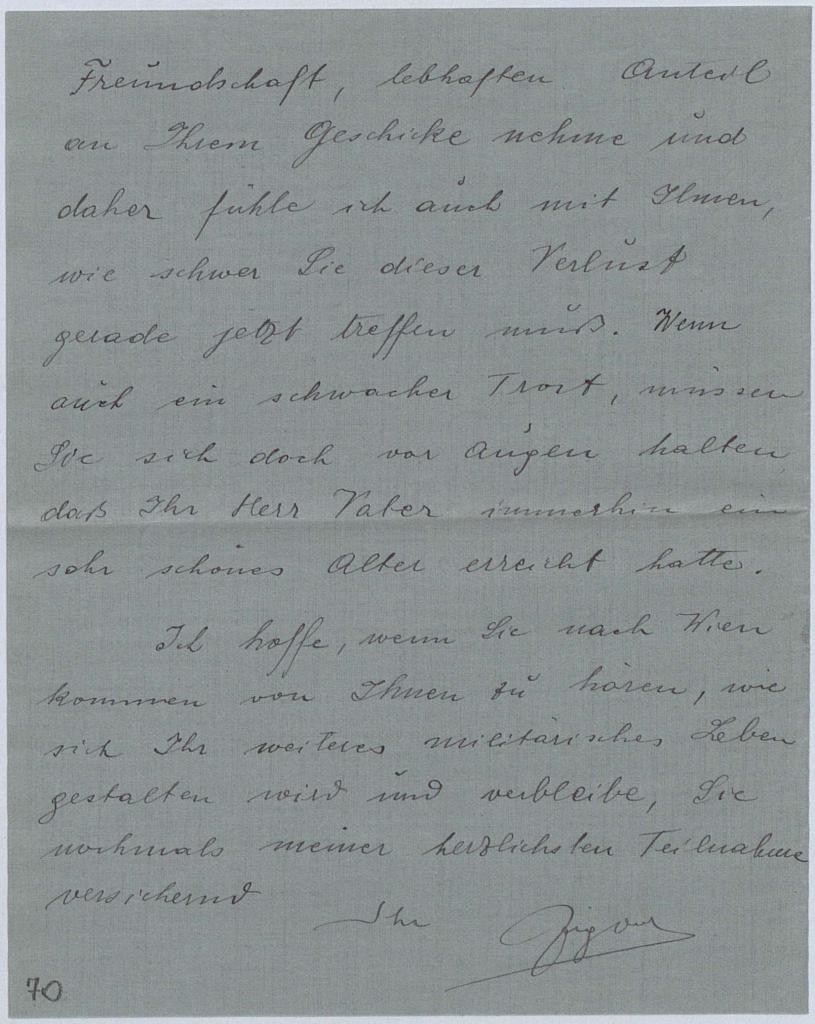 Freundschaft, lebhaften Anteil
an Ihrem Geschicke nehme und
daher fühle ich auch mit Ihnen,
wie schwer Sie dieser Verlust
gerade jetzt treffen muß. Wenn
auch ein schwacher Trost, müssen
Sie sich doch vor Augen halten
daß Ihr Herr Vater immerhin ein
sehr schönes Alter erreicht hatte.
Ich hoffe, wenn Sie nach Wien
kommen von Ihnen zu hören, wie
sich Ihr weiteres militärisches Leben
gestalten wird und verbleibe, Sie
nochmals meiner herzlichsten Teilnahme
versichernd
Ihr
70